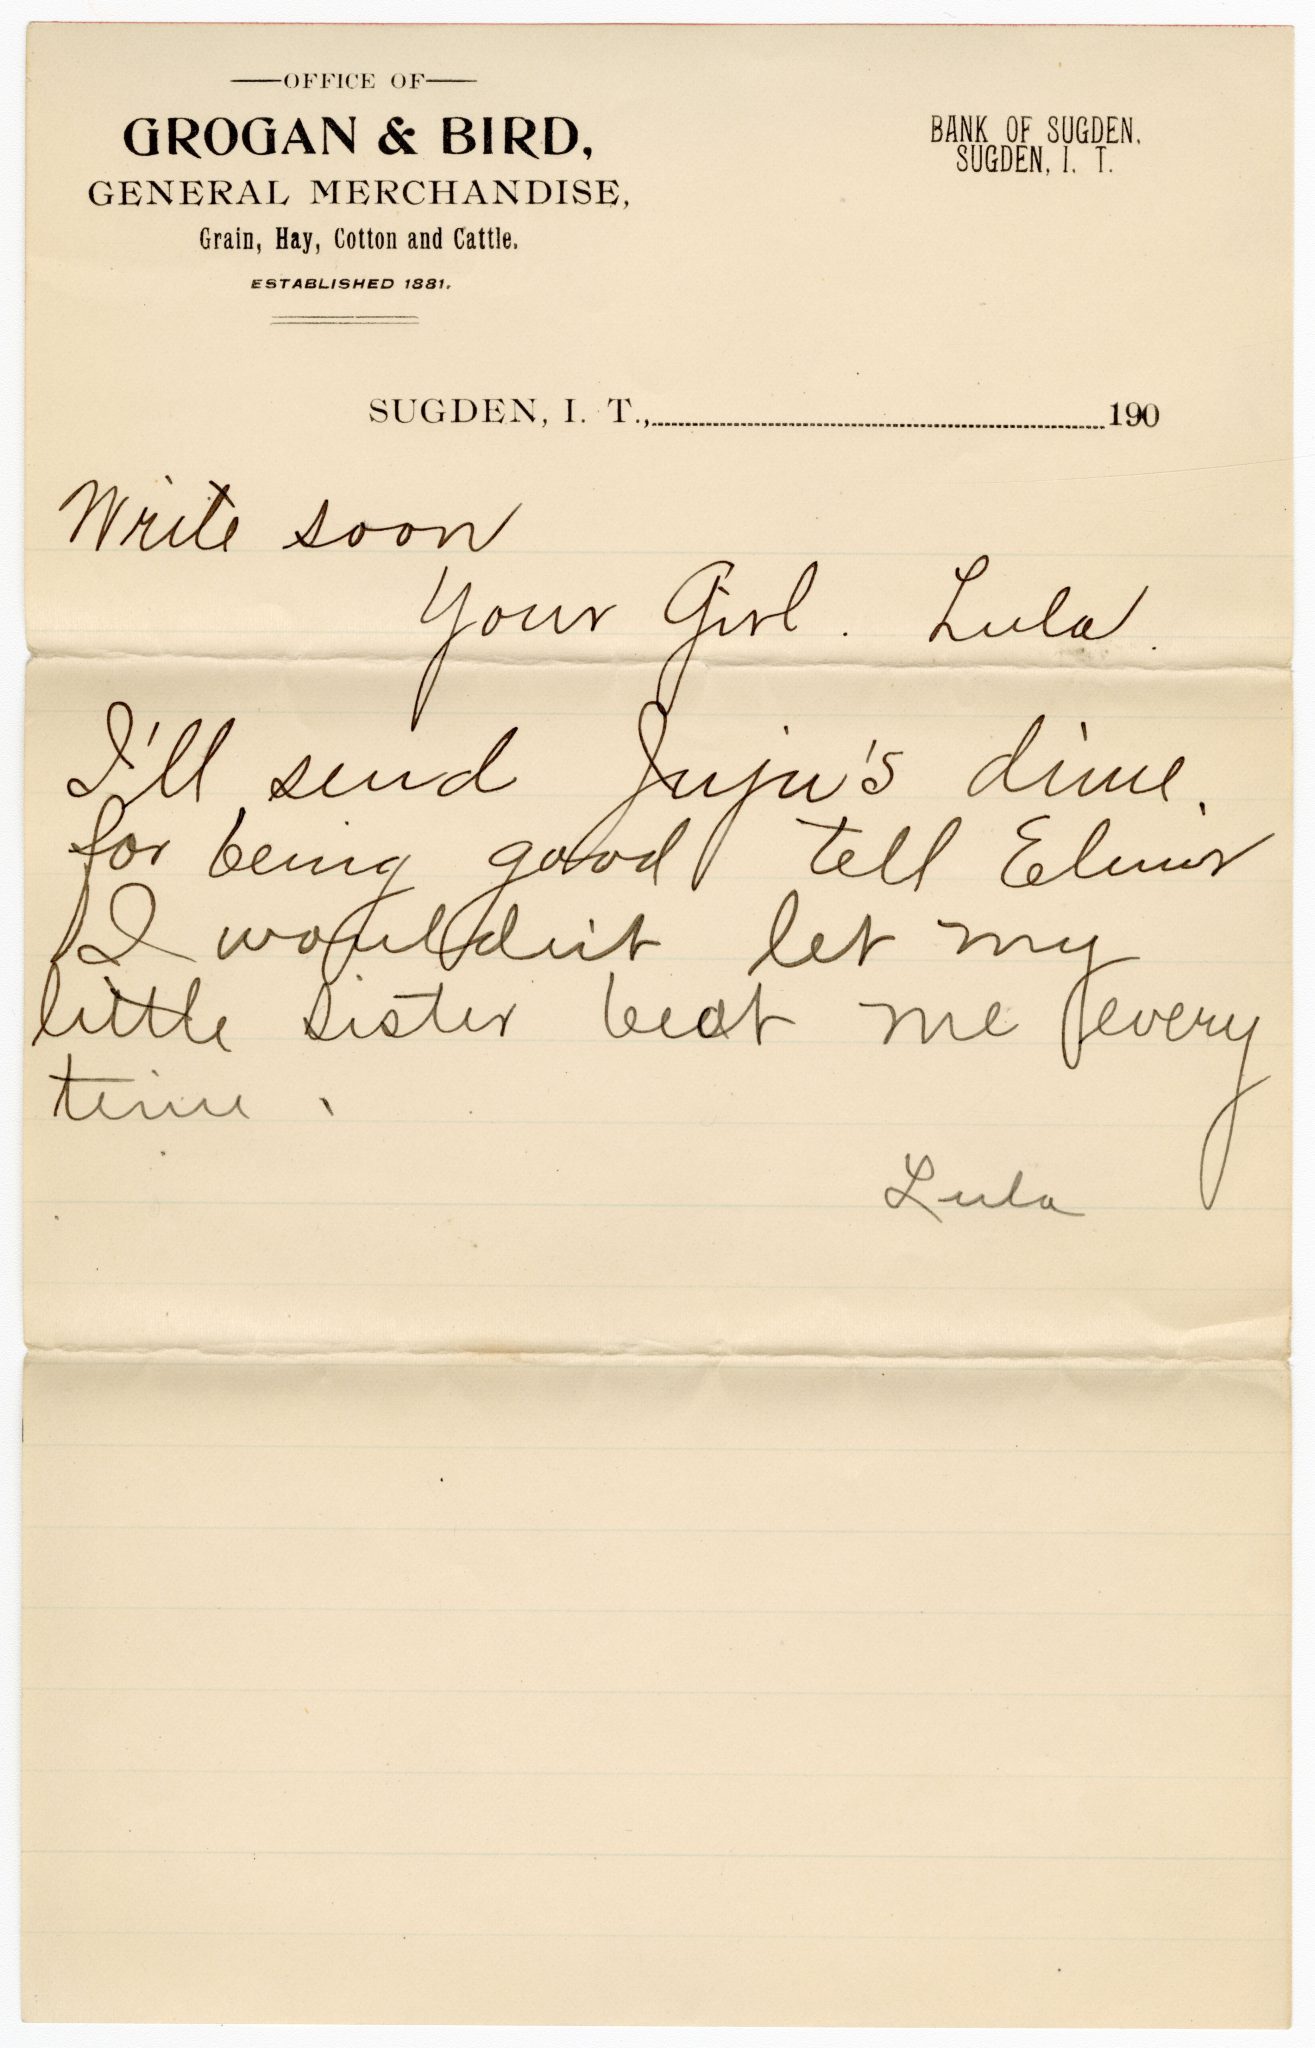 OFFICE OF
GROGAN & BIRD,
GENERAL MERCHANDISE,
Grain, Hay, Cotton and Cattle.
ESTABLISHED 1881.
BANK OF SUGDEN.
SUGDEN, I. T.
SUGDEN, I. T., 190
Write soon
Your Girl. Lula.
I'll send Juju's dime.
for being good tell Elmer
I wouldn't let my
little sister beat me every
time.
Lula